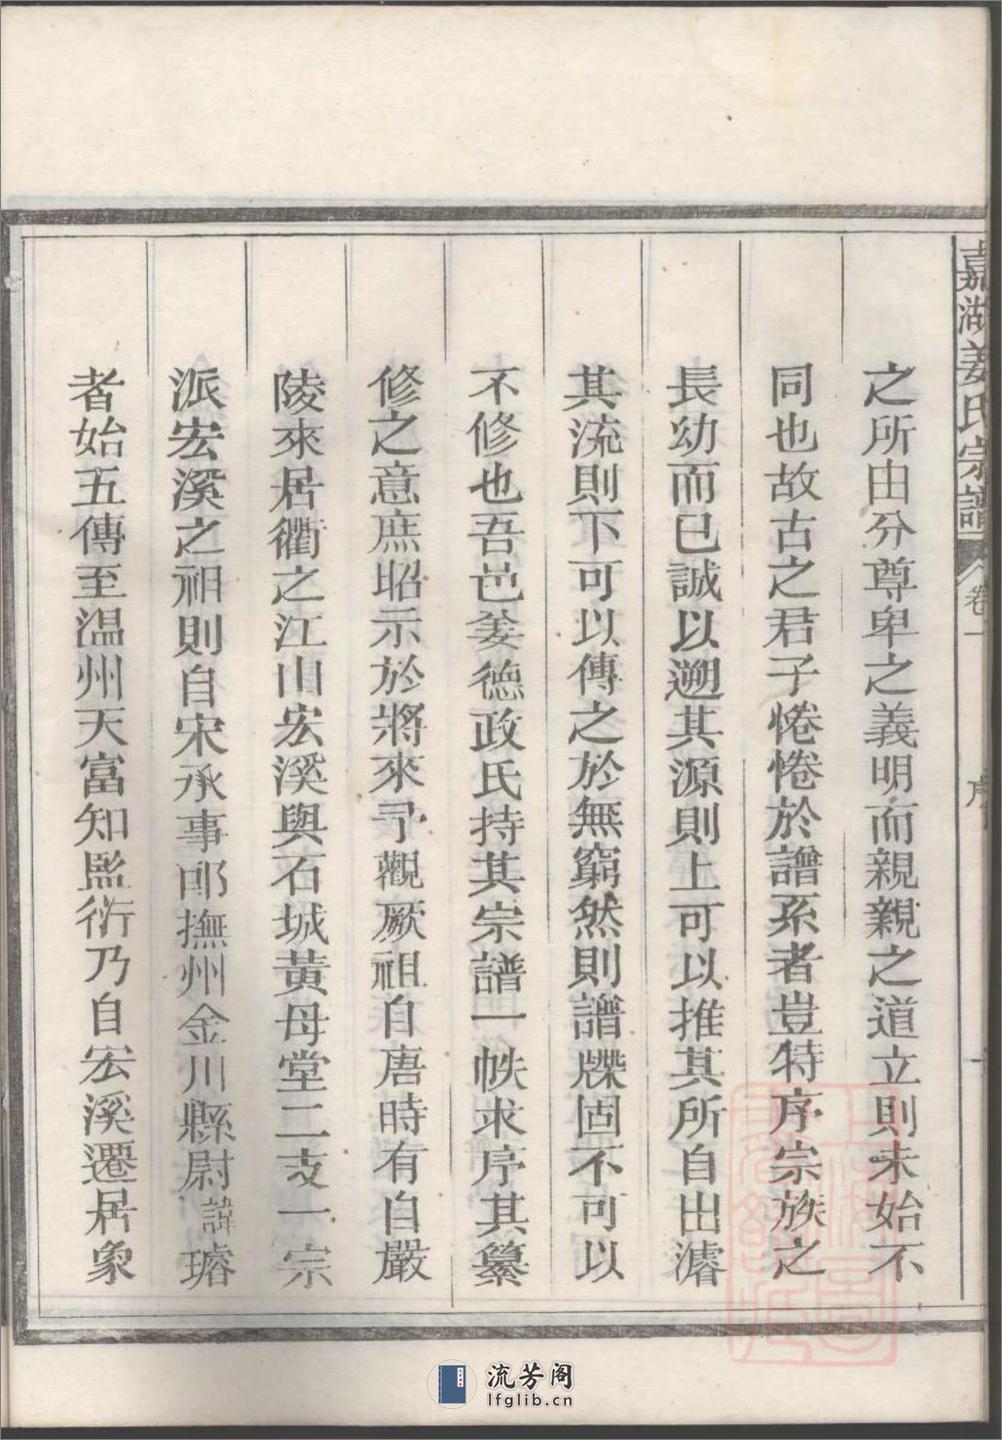 嘉湖姜氏宗譜 卷一 序
之所由分尊卑之義明而親親之道立則未始不
同也故古之君子惓惓於譜系者豈特序宗族之
長幼而已誠以遡其源則上可以推其所自出濬
其流則下可以傳之於無窮然則譜牒固不可以
不修也吾邑姜德政氏持其宗譜一帙求序其纂
修之意庶昭示於將來予觀厥祖自唐時有自嚴
陵來居衢之江山宏溪與石城黃母堂二支一宗
派宏溪之祖則自宋承事郎撫州金川縣尉諱璿
者始五傳至温州天富知監衍乃自宏溪遷居象
流芳阁
lfglib.cn